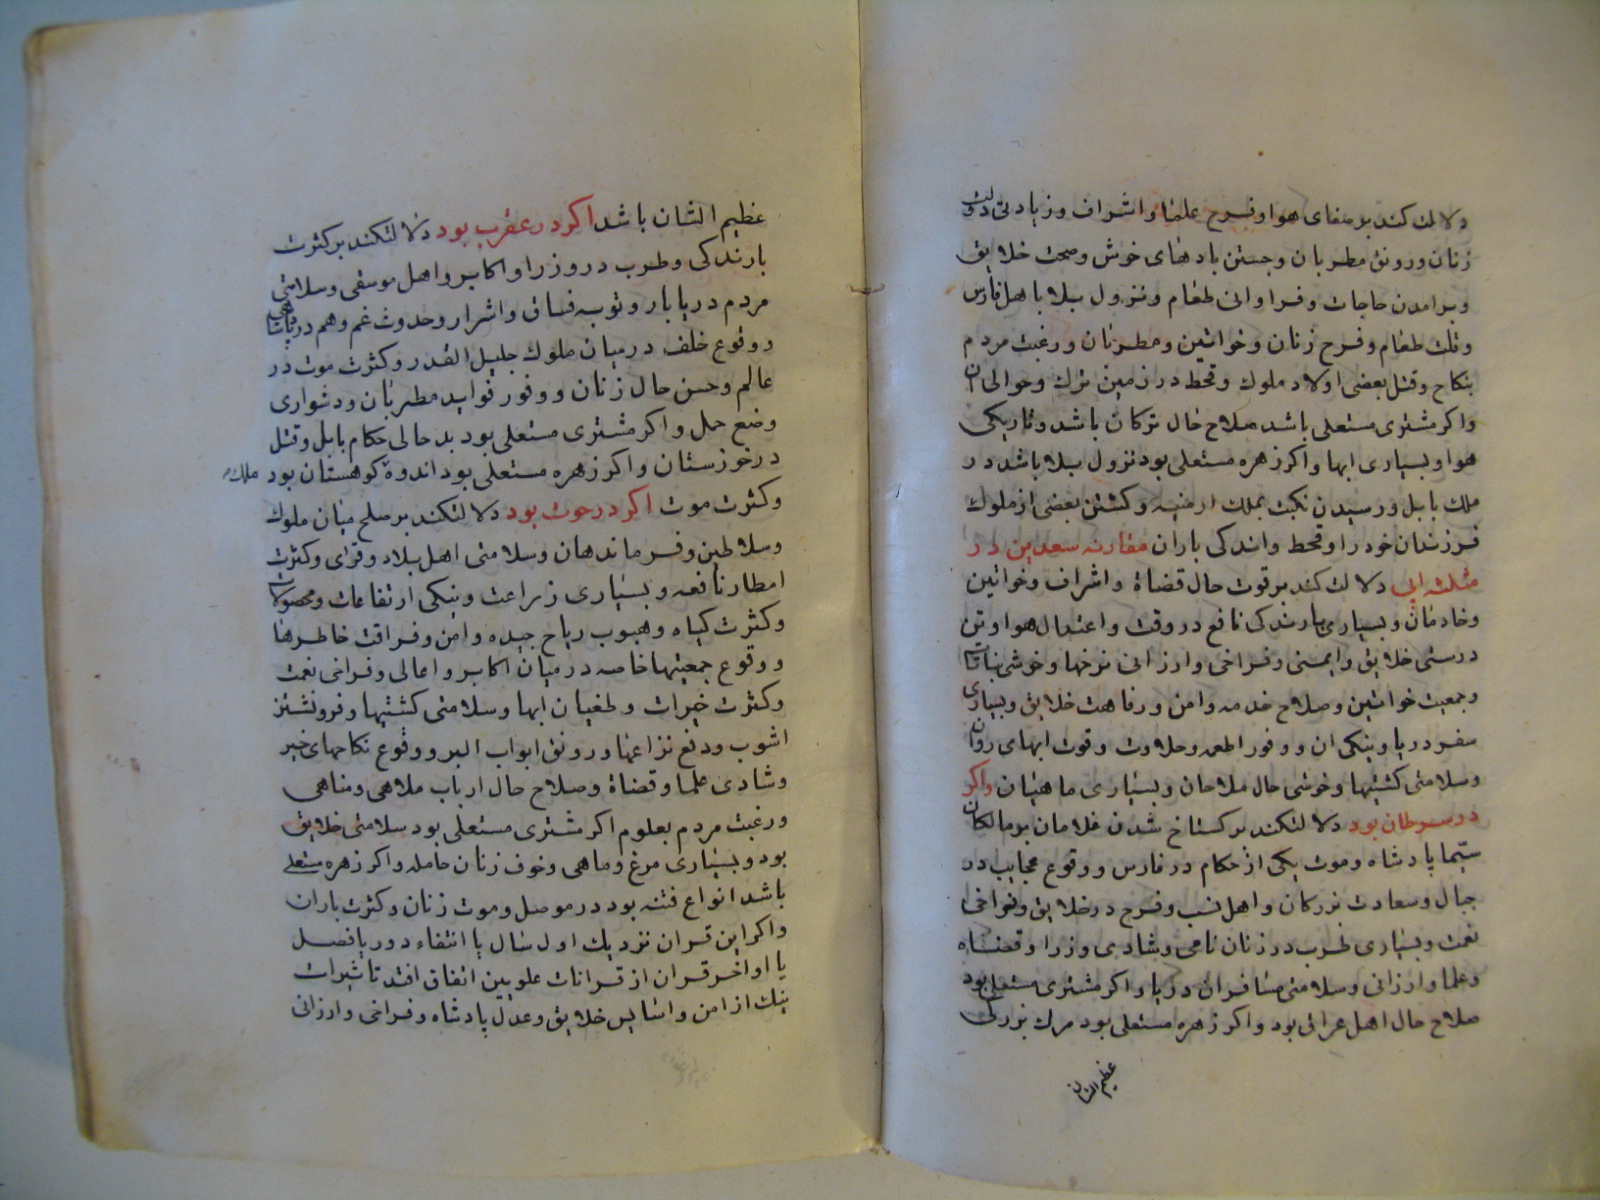 دلالت کند بر صفای هوا و فرح علما و اشراف و زیادتی دولت
زنان و رونق مطربان و جستن بادهای خوش و صحت خلایق
و برامدن حاجات و فراوانی طعام و نزول بلا باهل فارس
و قلت طعام و فرح زنان و خواتین و مطربان و رغبت مردم
بنکاح و قتل بعضی اولاد ملوک و قحط در زمین ترک و حوالی ان
و اکر مشتری مستعلی باشد صلاح حال ترکان باشد و تاریکی
هوا و بسیاری ابها و اکر زهره مستعلی بود نزول بلا باشد در
ملک بابل و رسیدن نکبت بملک ارمنیه و کشتن بعضی از ملوک
فرزندان خود را و قحط و اندکی باران مقارنه سعدین در
مثلثه ابی دلالت کند بر قوت حال قضاة و اشراف و خواتین
و خادمان و بسیاری بارندکی نافع در وقت و اعتدال هوا و تن
درستی خلایق و ایمنی و فراخی و ارزانی نرخها و خوشی نباتات
و جمعیت خواتین و صلاح خدمه و امن و رفاهت خلایق و بسیاری
سفر دریا و نیکی ان و وفور اطعمه و حلاوت و قوت ابهای روان
و سلامتی کشتیها و خوشی حال ملاحان و بسیاری ماهیان واکر
در سرطان بود دلالت کند بر کستاخ شدن غلامان بر مالکان
سیما پادشاه و موت یکی از حکام در فارس و وقوع عجایب در
جبال و سعادت بزرکان و اهل نسب و فرح در خلایق و فراخی
نعمت و بسیاری طرب در زنان نامی و شادی وزرا و قضاه
و علما و ارزانی و سلامتی مسافران دریا و اکر مشتری مستعلی بود
صلاح حال اهل عراق بود و اکر زهره مستعلی بود مرک بزرکی
عظیم الشان
عظیم الشان باشد اکر در عقرب بود دلالت کند بر کثرت
بارندکی و طرب در وزرا و اکابر و اهل موسقی و سلامتی
مردم دریابار و توبه فساق و اشرار و حدوث غم و هم در
و وقوع خلف در میان ملوک جلیل القدر و کثرت موت در
عالم و حسن حال زنان و وفور فواید مطربان و دشواری
وضع حمل و اکر مشتری مستعلی بود بد حالی حکام بابل و قتل
در خوزستان و اکر زهره مستعلی بود اندوه کوهستان بود ملک
و کثرت موت اکر در حوت بود دلالت کند بر صلح میان ملوک
و سلاطین و فرماندهان و سلامتی اهل بلاد و قرای و کثرت
امطار نافعه و بسیاری زراعت و نیکی ارتفاعات و محصولات
و کثرت کیاه و هبوب ریاح جیده و امن و فراقت خاطرها
و وقوع جمعیتها خاصه در میان اکابر و اعالی و فراخی نعمت
و کثرت خیرات و طغیان ابها و سلامتی کشتیها و فرونشتنز
اشوب و دفع نزاعها و رونق ابواب البر و وقوع نکاحهای خیر
و شادی علما و قضاة و صلاح حال ارباب ملاهی و مناهی
و رغبت مردم بعلوم اکر مشتری مستعلی بود سلامتی خلایق
بود و بسیاری مرغ و ماهی و خوف زنان حامله و اکر زهره مستعلے
باشد انواع فتنه بود در موصل و موت زنان و کثرت باران
و اکر این قران نزدیک اول سال یا انتقاء دور یا فصل
یا اواخر قران از قرانات علویین اتفاق افتد تاثیرات
نیک از امن و اسایس خلایق و عدل پادشاه و فراخی و ارزانی